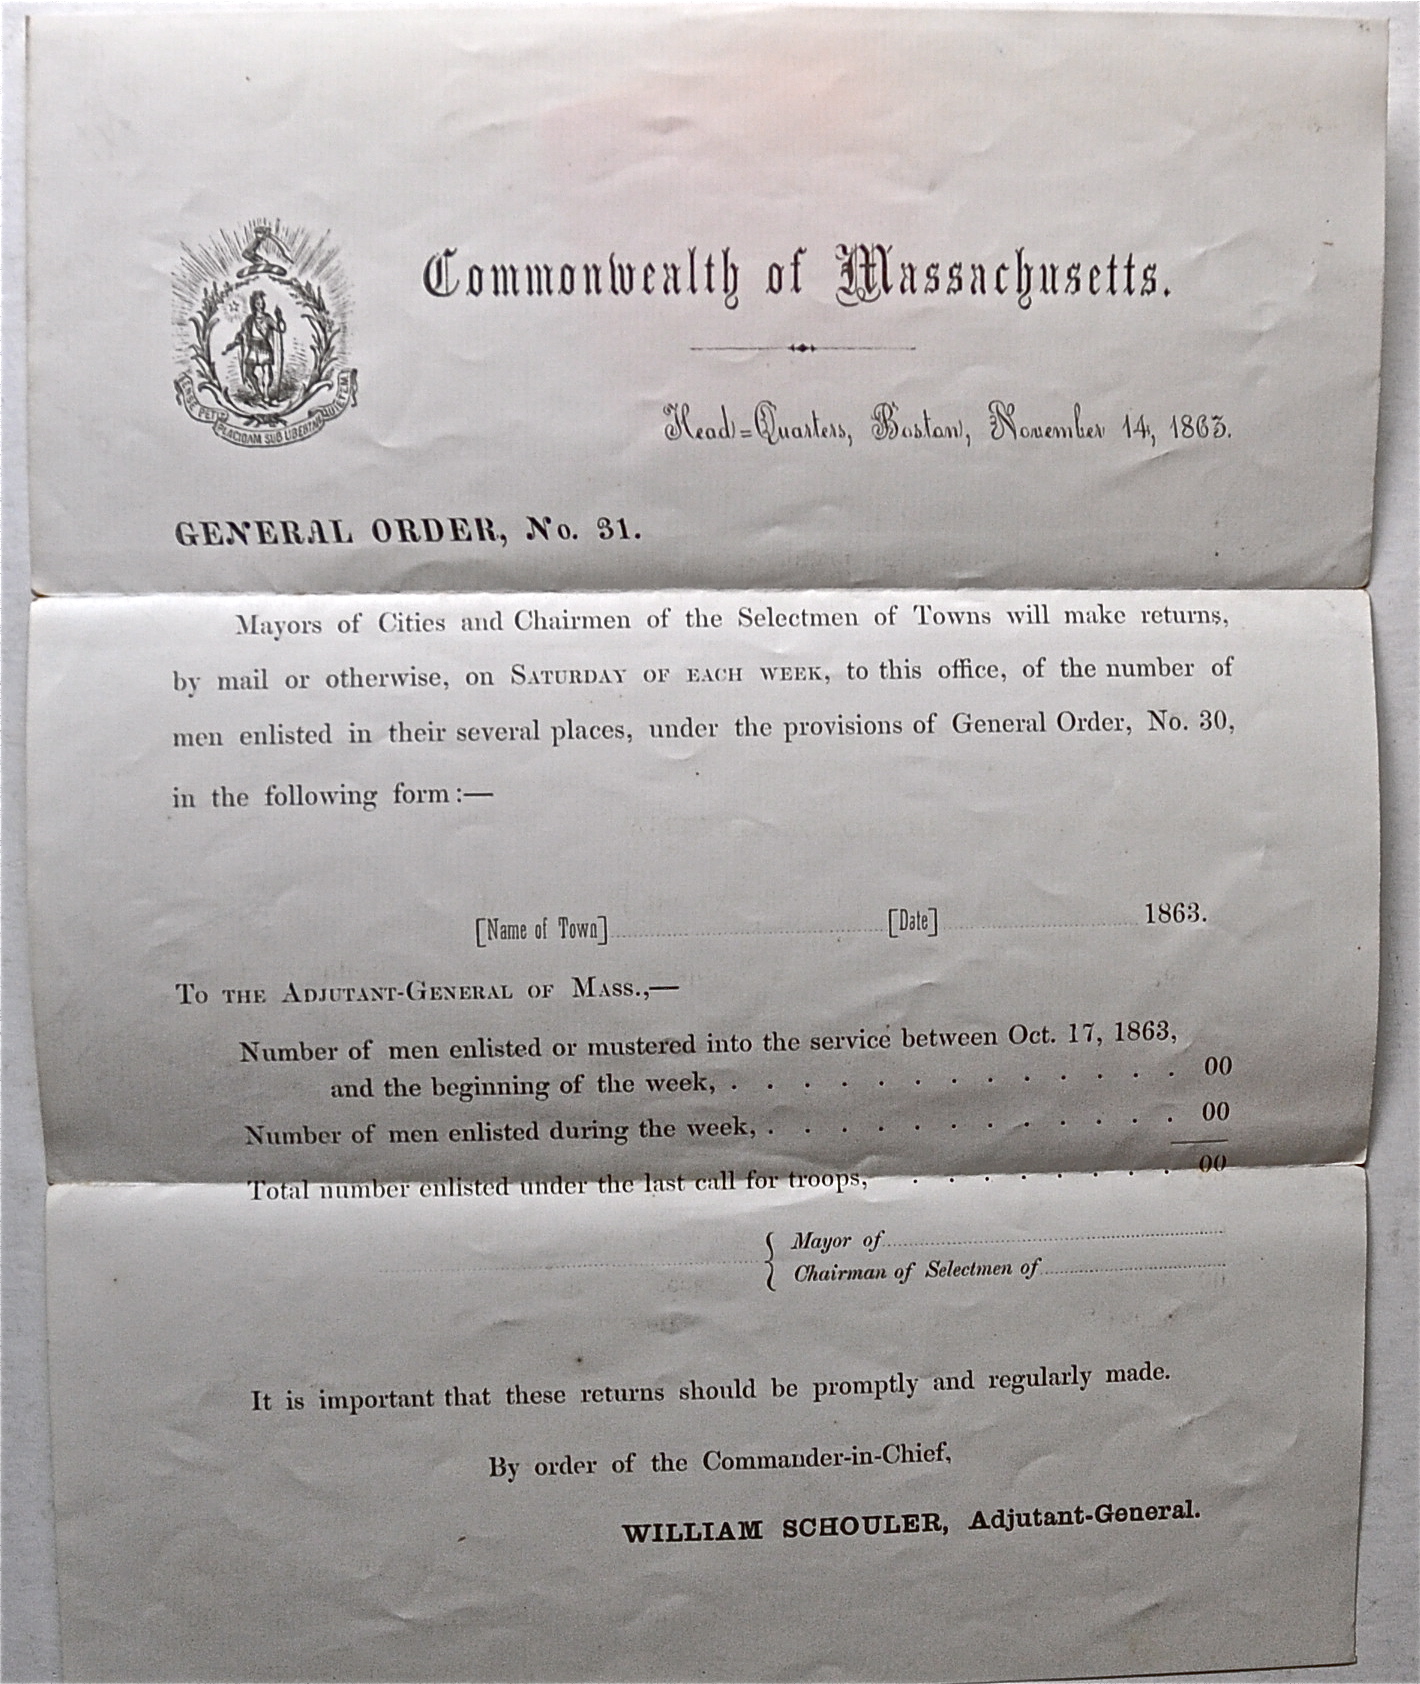 Commonwealth of Massachusetts.
ENSE PETIT PLACIDAM SUB LIBERTATE QUIETEM
Head=Quarters, Boston, November 14, 1863.
GENERAL ORDER, No. 31.
Mayors of Cities and Chairmen of the Selectmen of Towns will make returns,
by mail or otherwise, on SATURDAY OF EACH WEEK, to this office, of the number of
men enlisted in their several places, under the provisions of General Order, No. 30,
in the following form:—
[Name of Town] [Date] 1863.
TO THE ADJUTANT-GENERAL OF MASS.,—
Number of men enlisted or mustered into the service between Oct. 17, 1863,
and the beginning of the week, . . . . . . . . . . . . . 00
Number of men enlisted during the week, . . . . . . . . . . . . 00
Total number enlisted under the last call for troops, . . . . . . . . 00
{ Mayor of
Chairman of Selectmen of
It is important that these returns should be promptly and regularly made.
By order of the Commander-in-Chief,
WILLIAM SCHOULER, Adjutant-General.